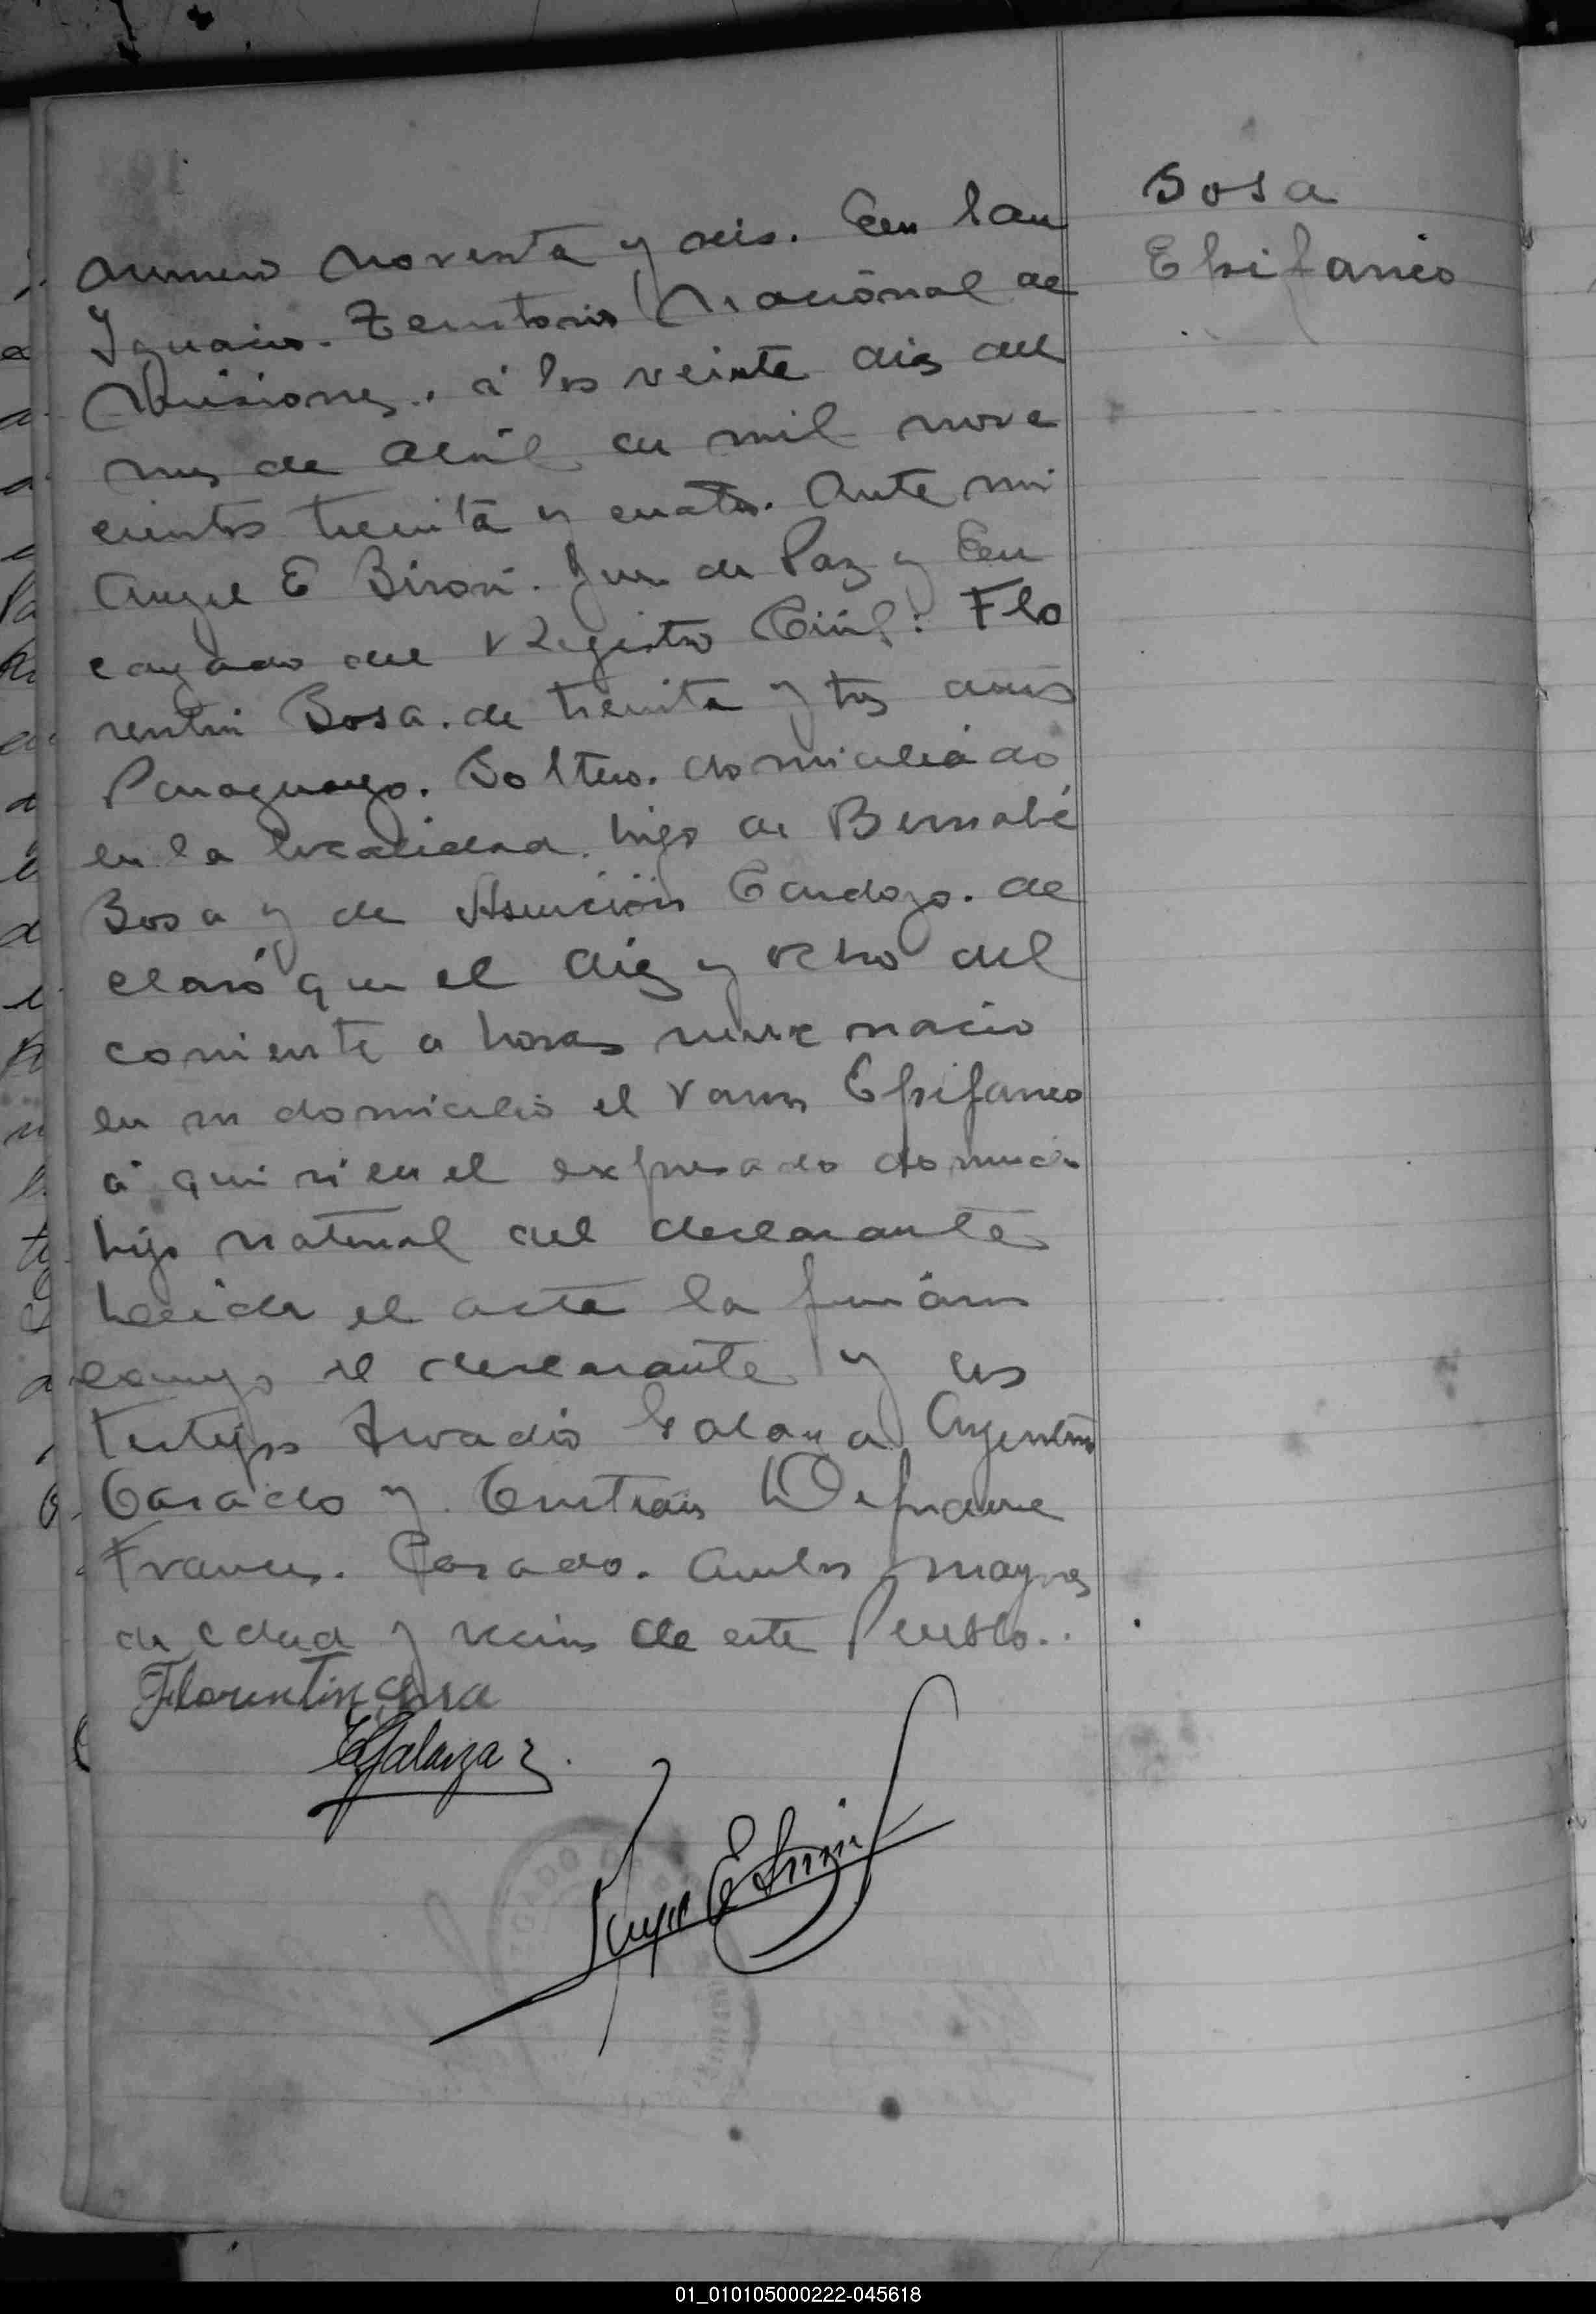 Sosa
Epifanio
Numero noventa y seis. En San
Ignacio. Territorio Nacional de
Misiones, á los veinte dias del
mes de Abril de mil nove
cientos treinta y cuatro. Ante mi
Angel E Bironi. Juez de Paz y En
cargado del Registro Civil: Flo
rentin Sosa. de treinta y tres años
Paraguayo. Soltero. domiciliado
en la localidad. hijo de Bernabé
Sosa y de Asuncion Cardozo. de
claró que el diez y ocho del
corriente a horas nueve nacio
en su domicilio el varon Epifanio
á quien vi en el expresado domicilio
hijo natural del declarante
Leida el acta la firmaron
conmigo el declarante y los
testigos Galarza Argentino
Casado y Cristian
Frances. Casado. Ambos mayores
de edad y vecinos de este Pueblo..
Florentin Sosa
Galarza
Angel E
01_010105000222-045618